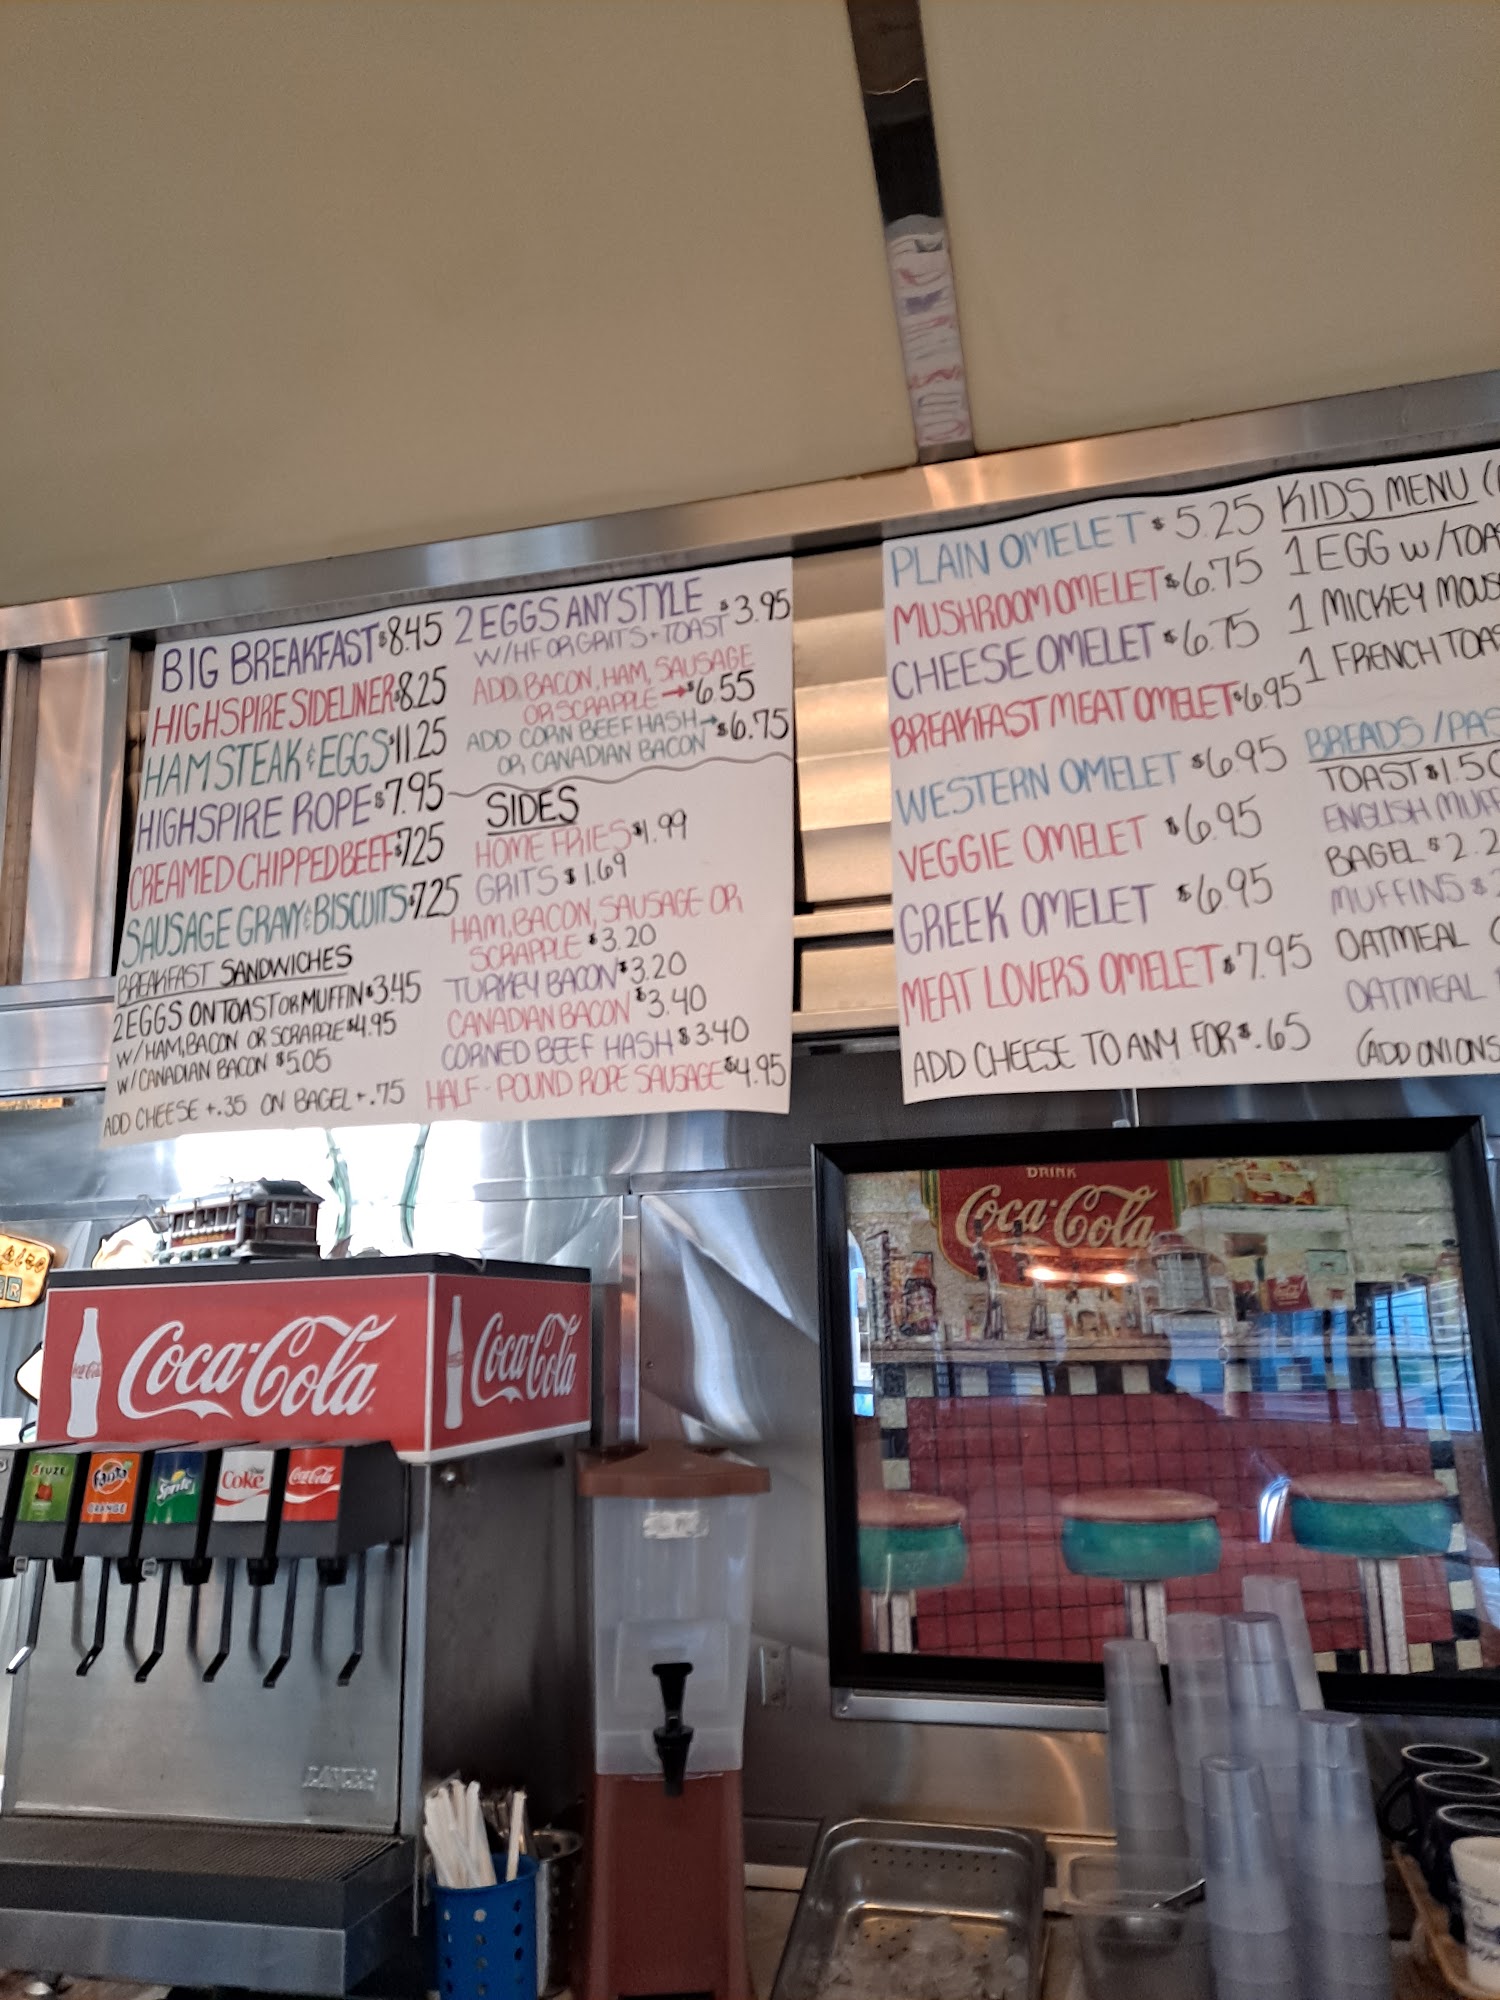 BIG BREAKFAST $8.45
HIGHSPIRE SIDELINER $8.25
HAM STEAK & EGGS $11.25
HIGHSPIRE ROPE $7.95
CREAMED CHIPPED BEEF $7.25
SAUSAGE GRAVY & BISCUITS $7.25
BREAKFAST SANDWICHES
2 EGGS ON TOAST OR MUFFIN $3.45
W/HAM, BACON OR SCRAPPLE $4.95
W/CANADIAN BACON $5.05
ADD CHEESE +.35 ON BAGEL +.75
2 EGGS ANY STYLE $3.95
W/HF OR GRITS + TOAST
ADD, BACON, HAM, SAUSAGE
OR SCRAPPLE → $6.55
ADD CORN BEEF HASH → $6.75
OR CANADIAN BACON
SIDES
HOME FRIES $1.99
GRITS $1.69
HAM, BACON, SAUSAGE OR
SCRAPPLE $3.20
TURKEY BACON $3.20
CANADIAN BACON $3.40
CORNED BEEF HASH $3.40
HALF-POUND ROPE SAUSAGE $4.95
PLAIN OMELET $5.25
MUSHROOM OMELET $6.75
CHEESE OMELET $6.75
BREAKFAST MEAT OMELET $6.95
WESTERN OMELET $6.95
VEGGIE OMELET $6.95
GREEK OMELET $6.95
MEAT LOVERS OMELET $7.95
ADD CHEESE TO ANY FOR $.65
KIDS MENU (
1 EGG w/TOA
1 MICKEY MOUS
1 FRENCH TOA
BREADS/PAS
TOAST $1.50
ENGLISH MUFF
BAGEL $2.2
MUFFINS $
OATMEAL
OATMEAL
(ADD ONIONS
DRINK
Coca-Cola
Coca-Cola
Coca-Cola
FUZE
Fanta
ORANGE
Sprite
Diet
Coke
Coca-Cola
LANCER